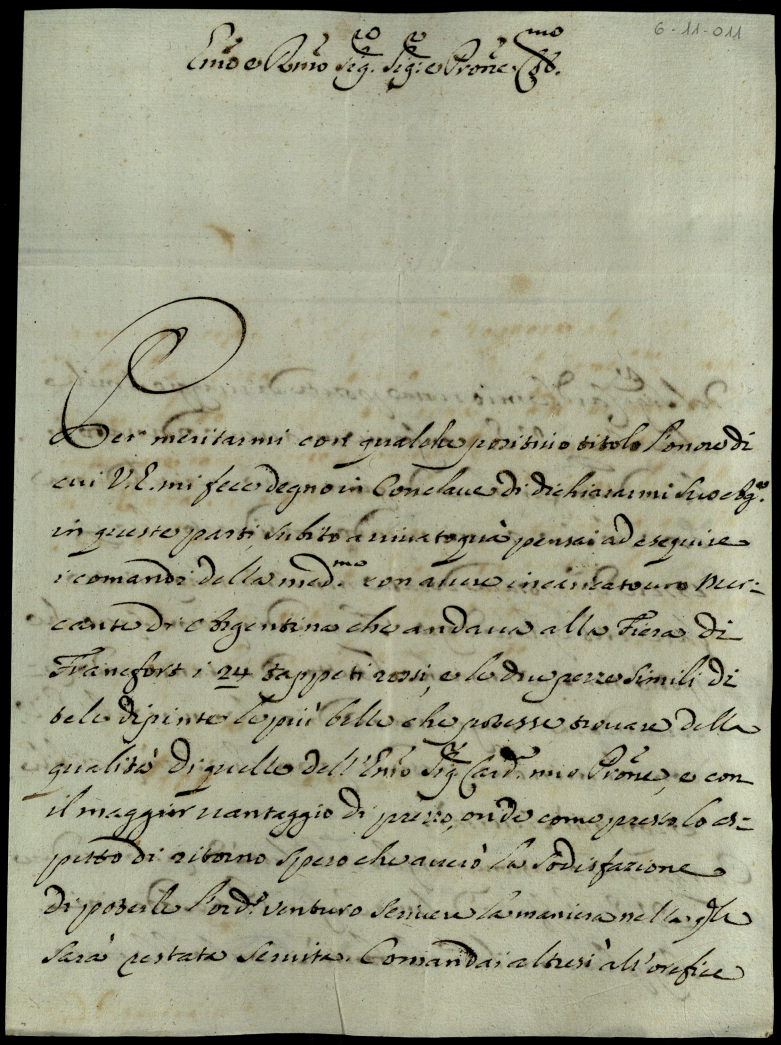 6-11-011
Emõ e Rmõ Sig.r Sig.r e Prõne Col.mo
Per meritarmi con qualche positivo titolo l'onore di
cui V.E. mi fece degno in Conclave di dichiararmi suo
in queste parti, subito arrivato quà pensai ad eseguire
i comandi della med.ma con avere incaricato un Mer=
cante d'Argentina che andava alla Fiera di
Francfort i 24 tappeti rossi, e le due pezze simili di
tele dipinte le più belle che potesse trovare della
qualità di quelle dell'Emõ Sig.r Card. mio Prõne, e con
il maggior vantaggio di prezzo, onde come presto lo as=
petto di ritorno spero che averò la sodisfazione
di poterle l'ord.o venturo scrivere la maniera nella qle
sarà restata servita. Comandai altresì all'orefice